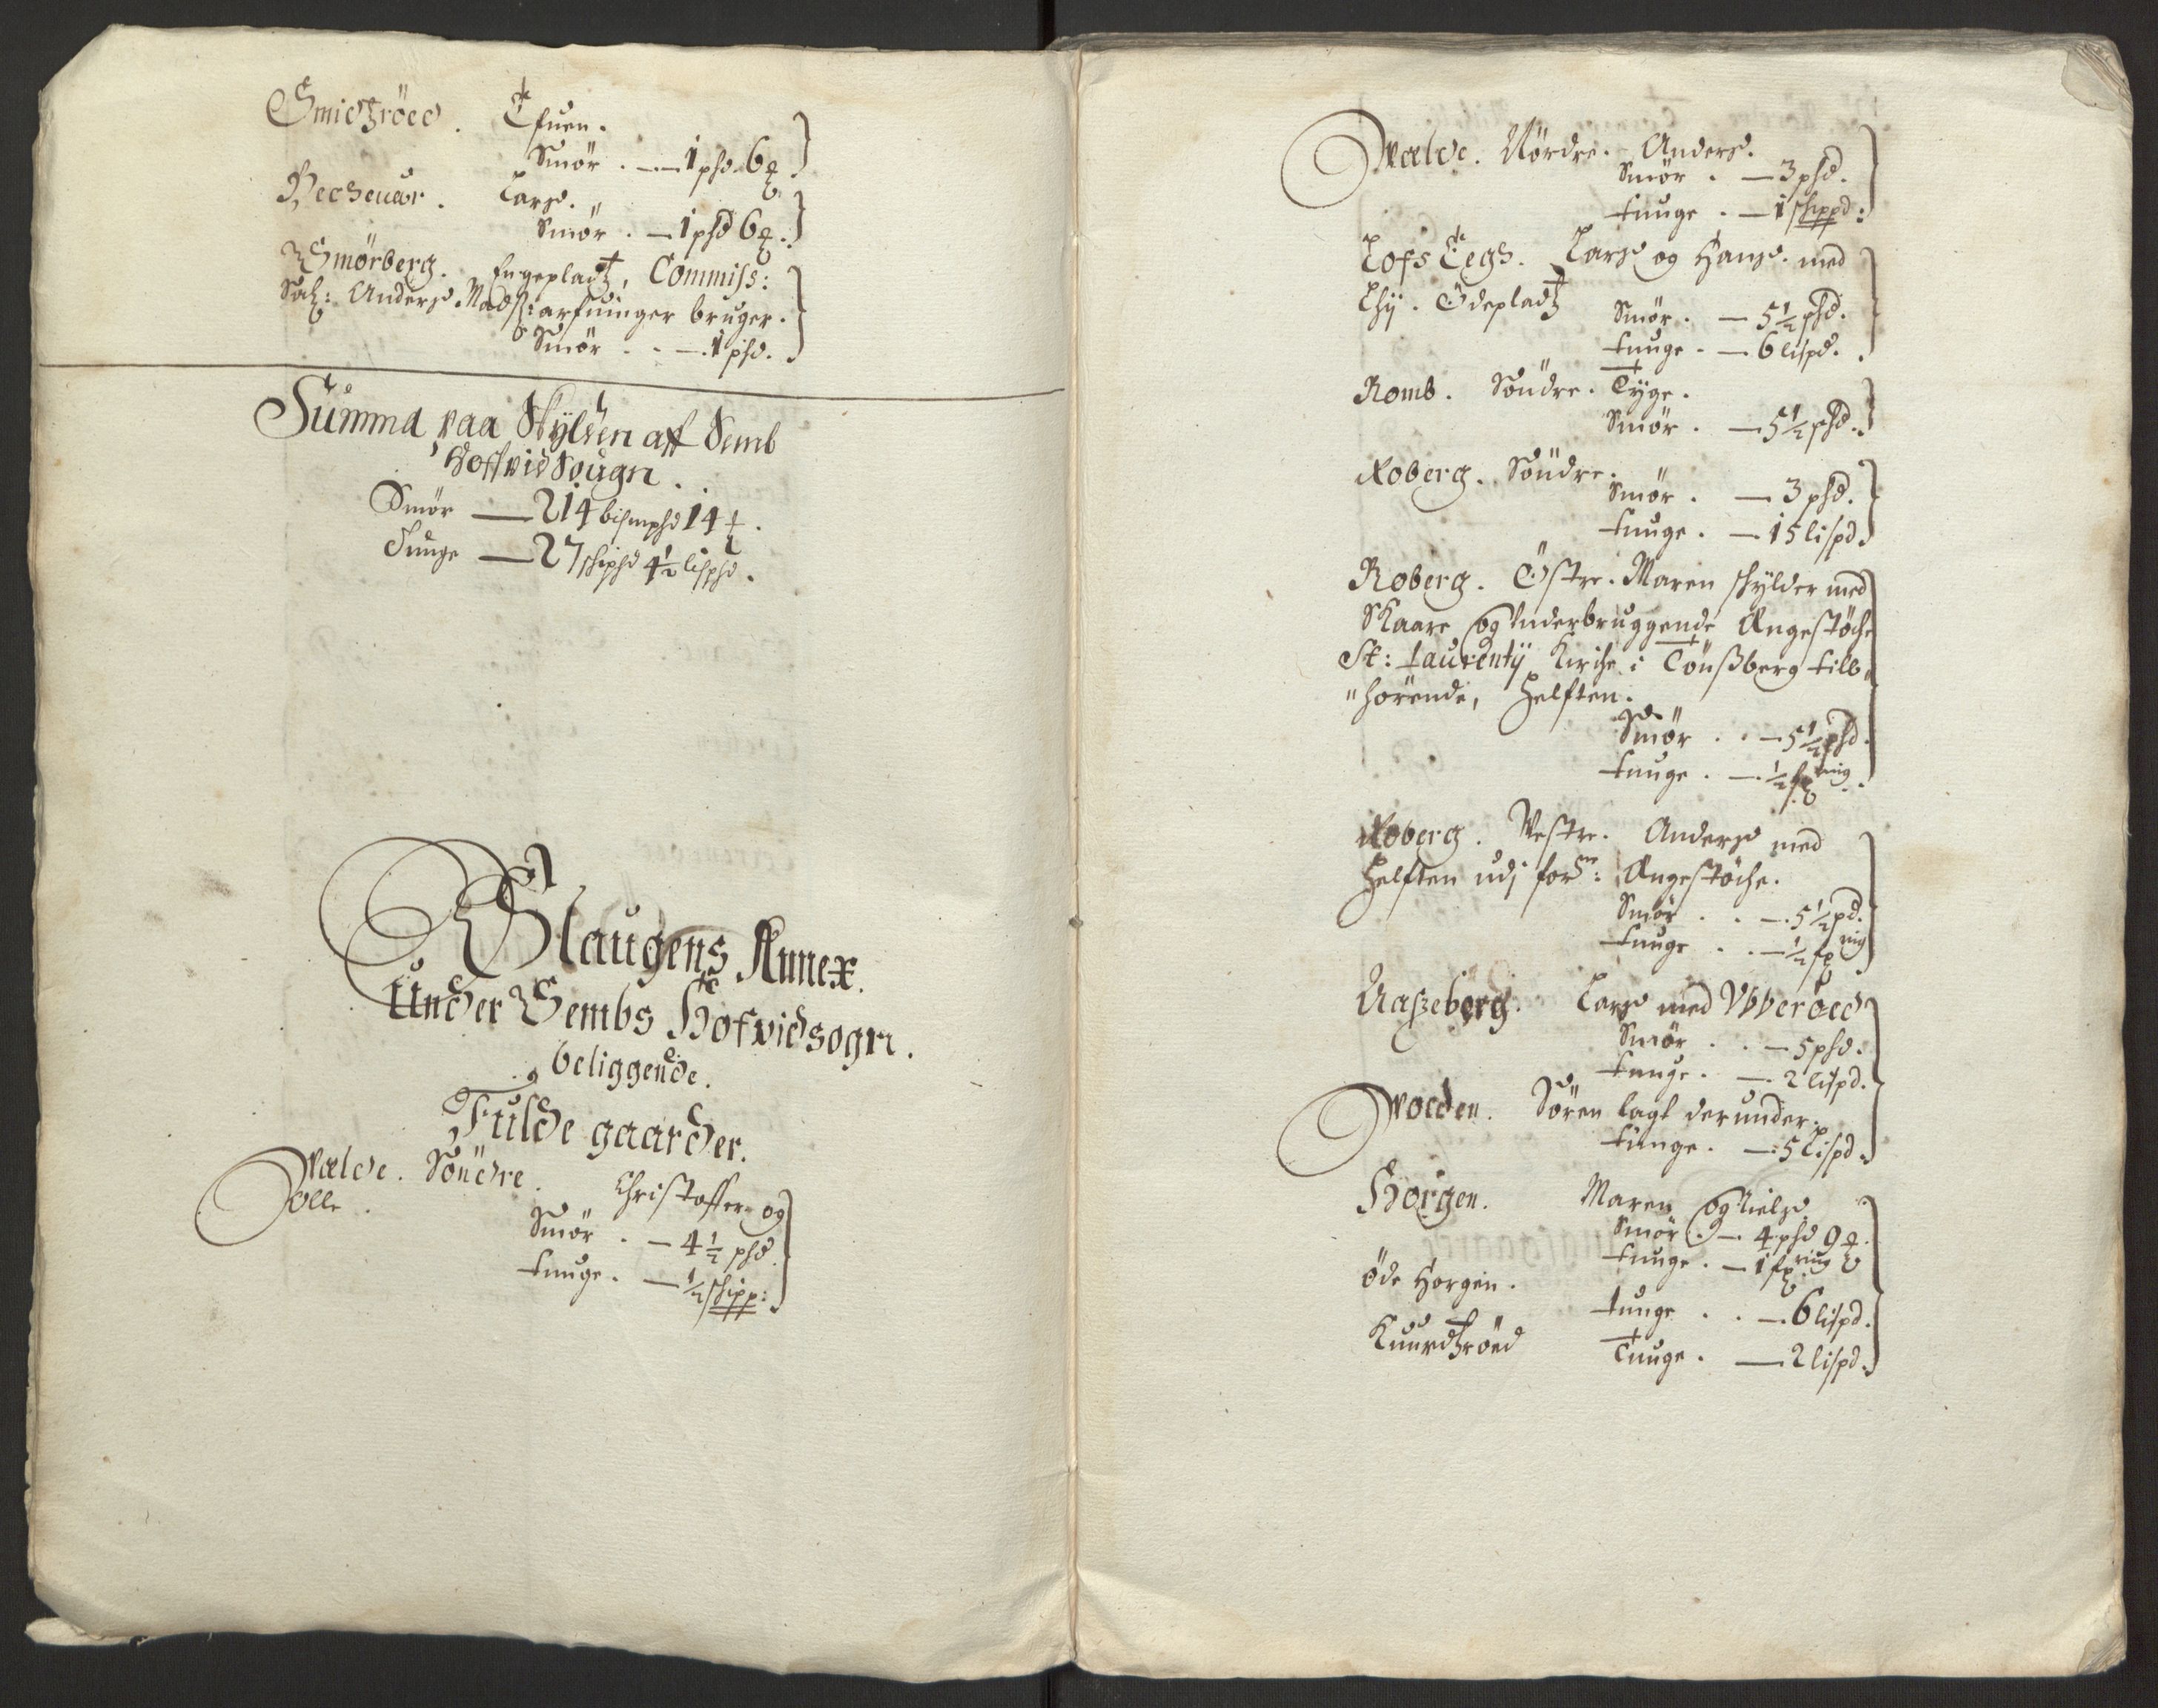 Smidtzröed. Efuen.
Smör. — 1 phd 6 ₰
Becheuar. Lars.
Smör. — 1 phd 6 ₰
Smörberg. Engepladtz, Commiss:
Sal: Anders Madsß: arfuinger bruger.
Smör . . — 1 phd.
Summa paa Skylden aff Semb
Hoffvid Sougn.
Smör — 214 bismphd 14 ₰.
Tunge — 27 skiphd 4½ lisphd.
Slaugens Annex.
Under Sembs Hofvidsogn.
beliggende.
Fulde gaarder.
Wælde. Söndre. Christoffer og
Olle.
Smör . — 4½ phd.
tunge. — ½ skipp:
Wælde. Nördre. Anders.
Smör . — 3 phd.
tunge . — 1 skippd:
Lofs Eegs. Lars og Hans. med
Ehy. Ödepladtz Smör. — 5½ phd.
tunge — 6 lispd.
Romb. Söndre. Tyge.
Smör. — 5½ phd.
Roberg. Söndre.
Smör. — 3 phd.
tunge. — 15 lispd.
Roberg. Östre. Maren skylder med
Skaare og Underbruggende Engestöche
St: Laurentij Kirche i Tönßberg tilb„
„hörende, helften.
Smör . . — 5½ phd.
tunge. — ½ fꝫ ring.
Roberg. Westre. Anders med
helften udj forn: Engestöche.
Smör . . — 5½ pd.
tunge . . — ½ fꝫ ring
Aaßeberg. Lars med Ubberöed
Smör . . — 5 phd.
tunge. — 2 lispd.
Wolden. Sören lagt derunder.
tunge. — 5 Lispd.
Horgen. Maren og Niels.
Smör. — 4 phd 9 ₰.
tunge. — 1 fꝫ ring
Öde Horgen.
tunge . . — 6 lispd.
Kuurdtzröed Tunge. — 2 lispd.